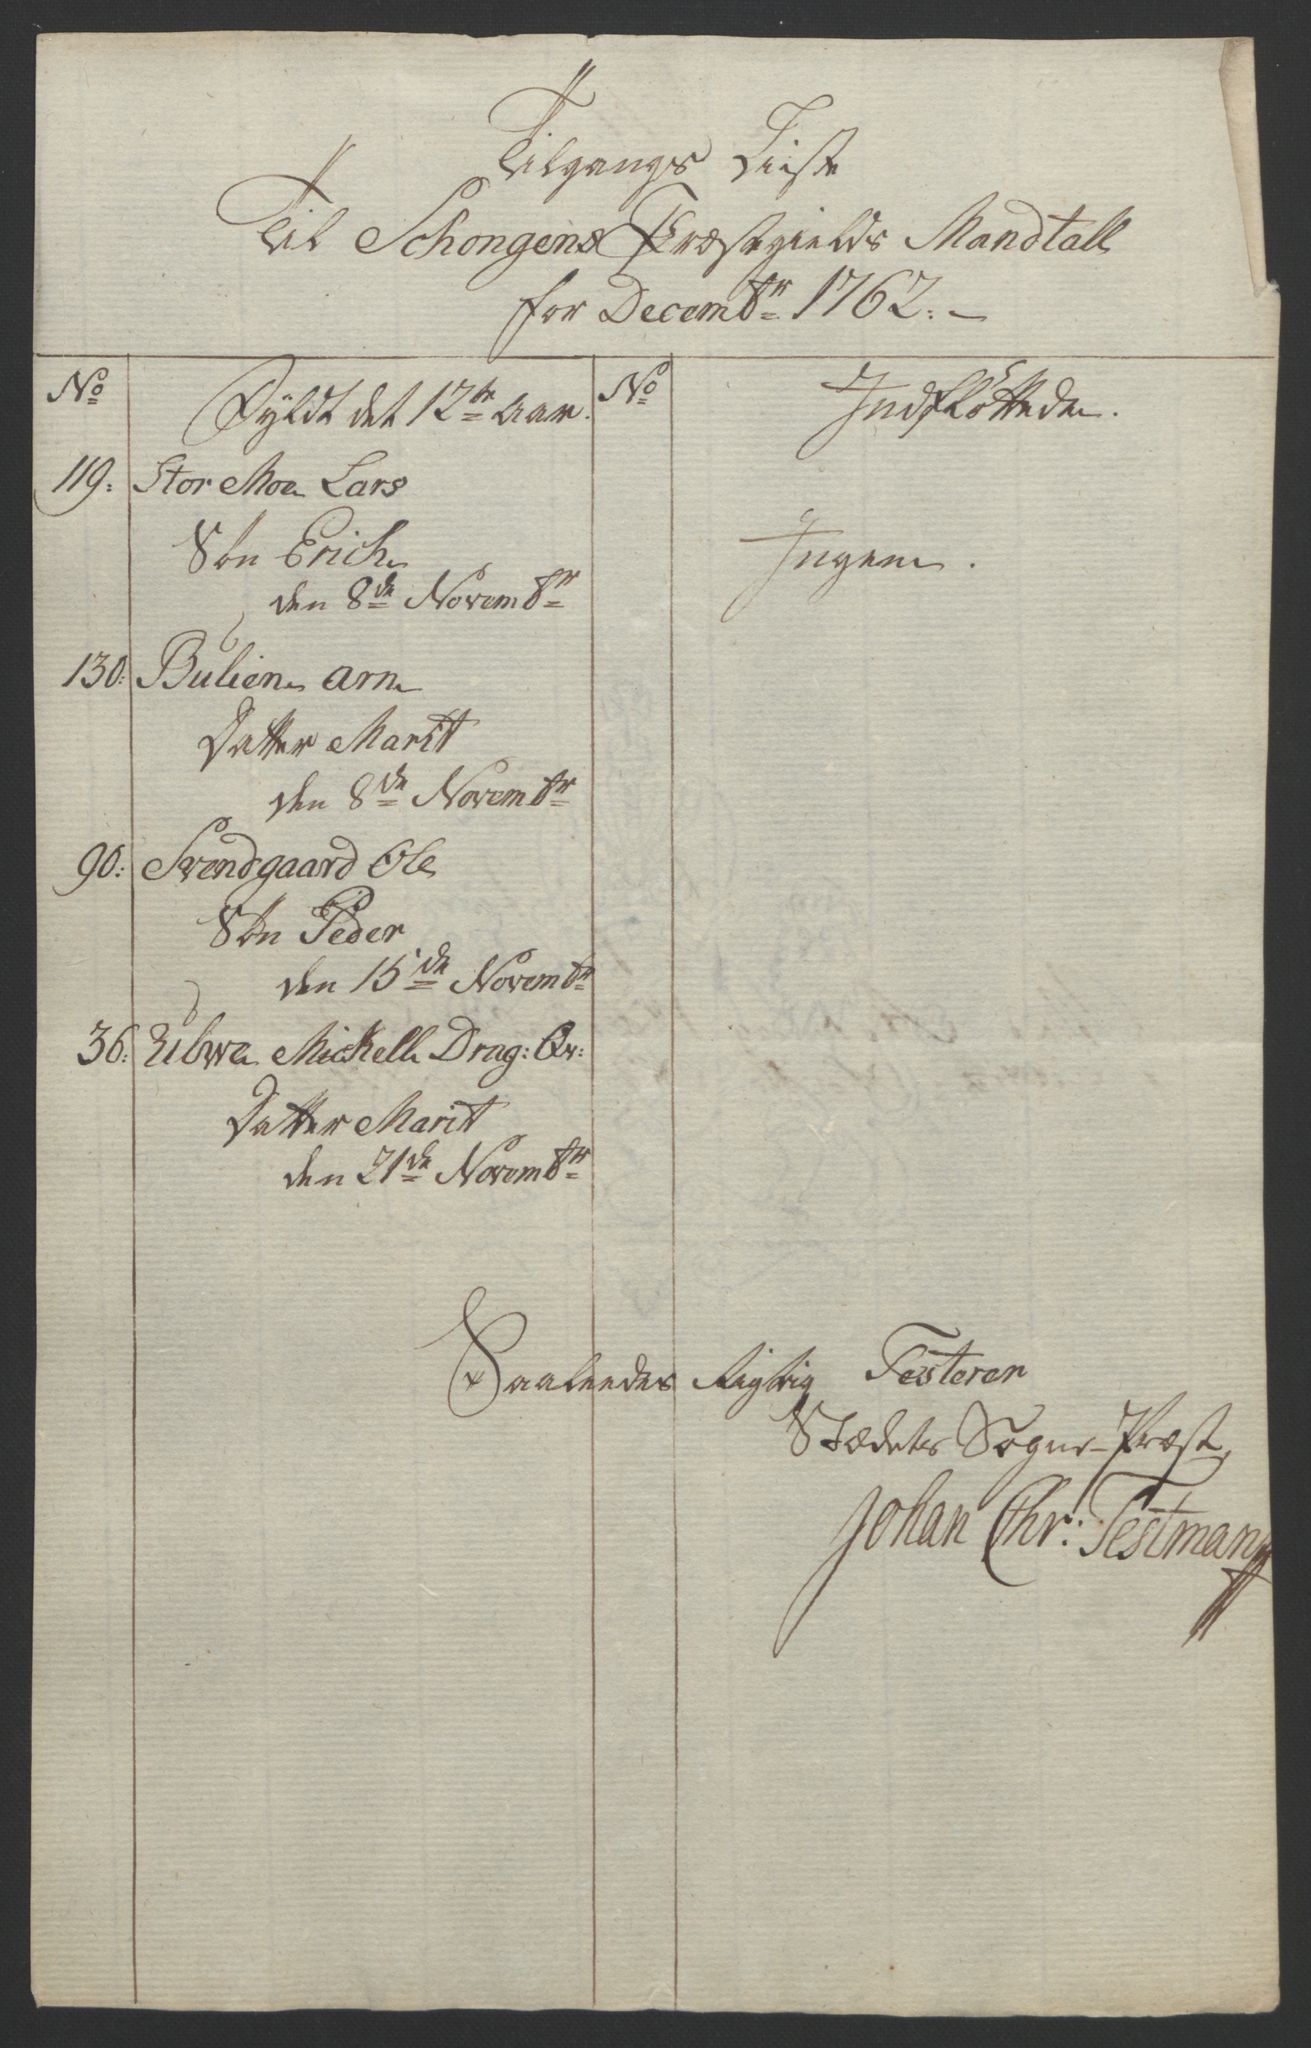 Tilgangs Liiste
Til Schongens Præstegields Mandtall
for Decembr 1762. –
No
Fyldt det 12te Aar.
No
Indfløttede.
119: Stor Moe Lars
Søn Erich
den 8de Novembr
Ingen.
130: Bulien Arn
Datter Marit
den 8de Novembr
90: Svendgaard Ole
Søn Peder
den 15de Novembr
36: Ulwe Mickell Drag: Qv:
Datter Marit
den 21de Novembr
Saaleedes Rigtig Testerer
Stædets Sogne-Præst
Johan Chr: Testman